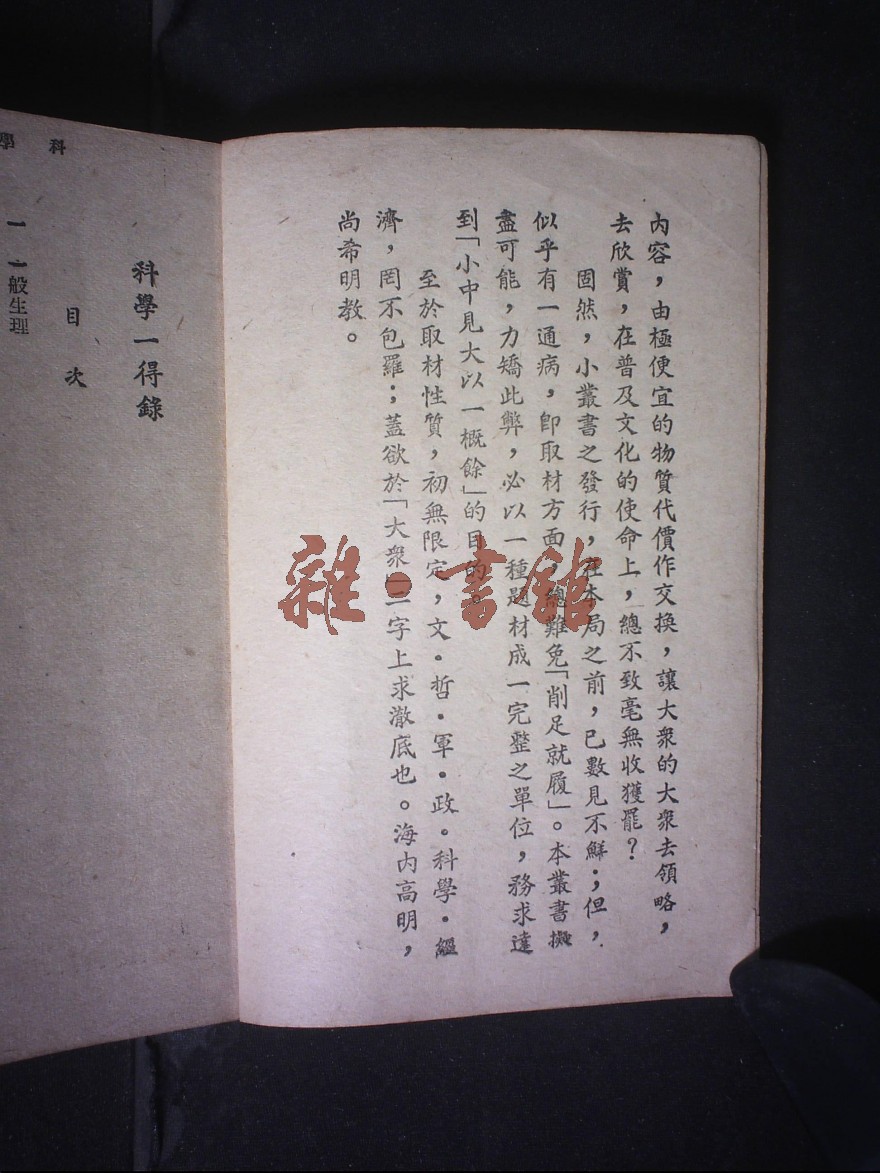 內容，由極便宜的物質代價作交換，讓大衆的大衆去領略，
去欣賞，在普及文化的使命上，總不致毫無收獲罷？
固然，小叢書之發行，在本局之前，已數見不鮮；但，
似乎有一通病，卽取材方面，總難免「削足就履」。本叢書擬
盡可能，力矯此弊，必以一種題材成一完整之單位，務求達
到「小中見大以一概餘」的目的。
至於取材性質，初無限定，文・哲・軍・政・科學・經
濟，罔不包羅；蓋欲於「大衆」二字上求澈底也。海內高明，
尚希明教。
科學
科學一得錄
目次
一 一般生理
雜・書館